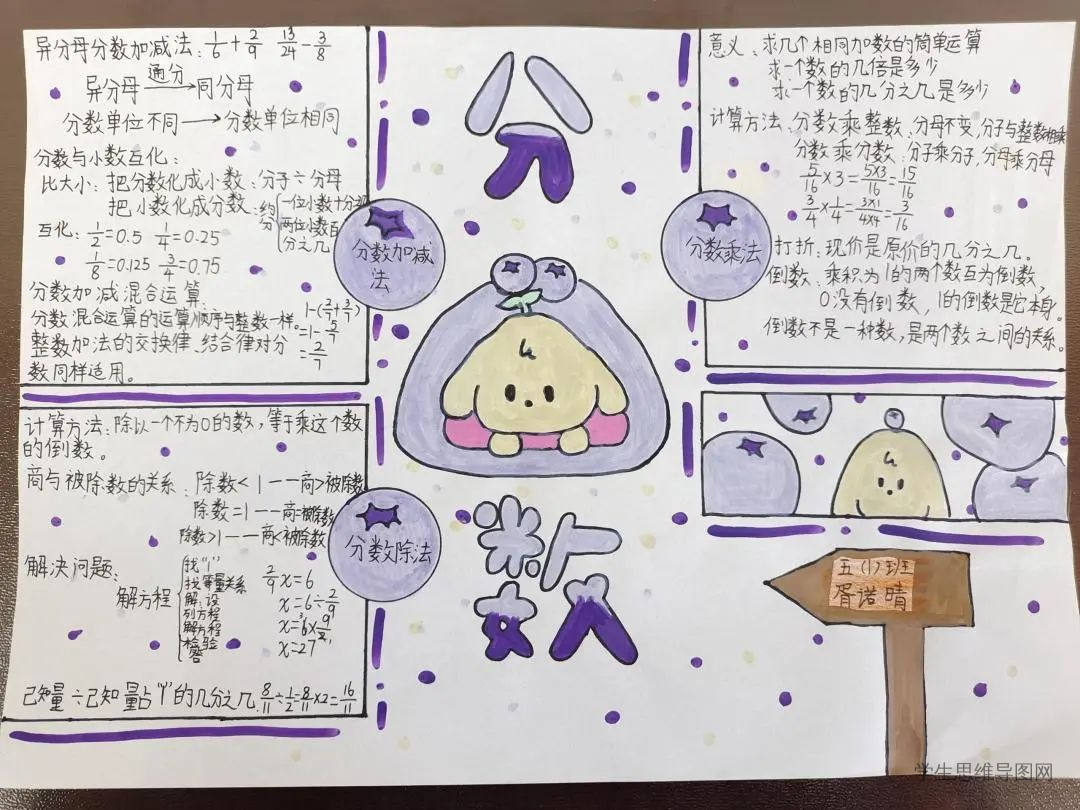 异分母分数加减法：1/6+2/9 13/24-3/8
通分
异分母→同分母
分数单位不同→分数单位相同
分数与小数互化：
比大小：把分数化成小数：分子÷分母
把小数化成分数：约分
一位小数十分之几
两位小数百分之几
互化：1/2=0.5 1/4=0.25
1/8=0.125 3/4=0.75
分数加减混合运算：
分数混合运算的运算顺序与整数一样。
整数加法的交换律、结合律对分
数同样适用。
1-(2/7+3/7)
=1-5/7
=2/7
分数加减
法
分
数
意义：求几个相同加数的简单运算
求一个数的几倍是多少
求一个数的几分之几是多少
计算方法：分数乘整数、分母不变，分子与整数相乘
分数乘分数：分子乘分子，分母乘分母
5/16×3=5×3/16=15/16
3/4×1/4=3×1/4×4=3/16
打折：现价是原价的几分之几。
倒数：乘积为1的两个数互为倒数，
0没有倒数，1的倒数是它本身。
倒数不是一种数，是两个数之间的关系。
分数乘法
计算方法：除以一个不为0的数，等于乘这个数
的倒数。
商与被除数的关系：除数<1——商>被除数
除数=1——商=被除数
除数>1——商<被除数
解决问题：
解方程
找“1”
找等量关系
解：设
列方程
解方程
检验
答
2/9x=6
x=6÷2/9
x=6×9/2
x=27
已知量÷已知量占“1”的几分之几 8/11÷1/2=8/11×2=16/11
分数除法
五（1）班
胥诺晴
学生思维导图网